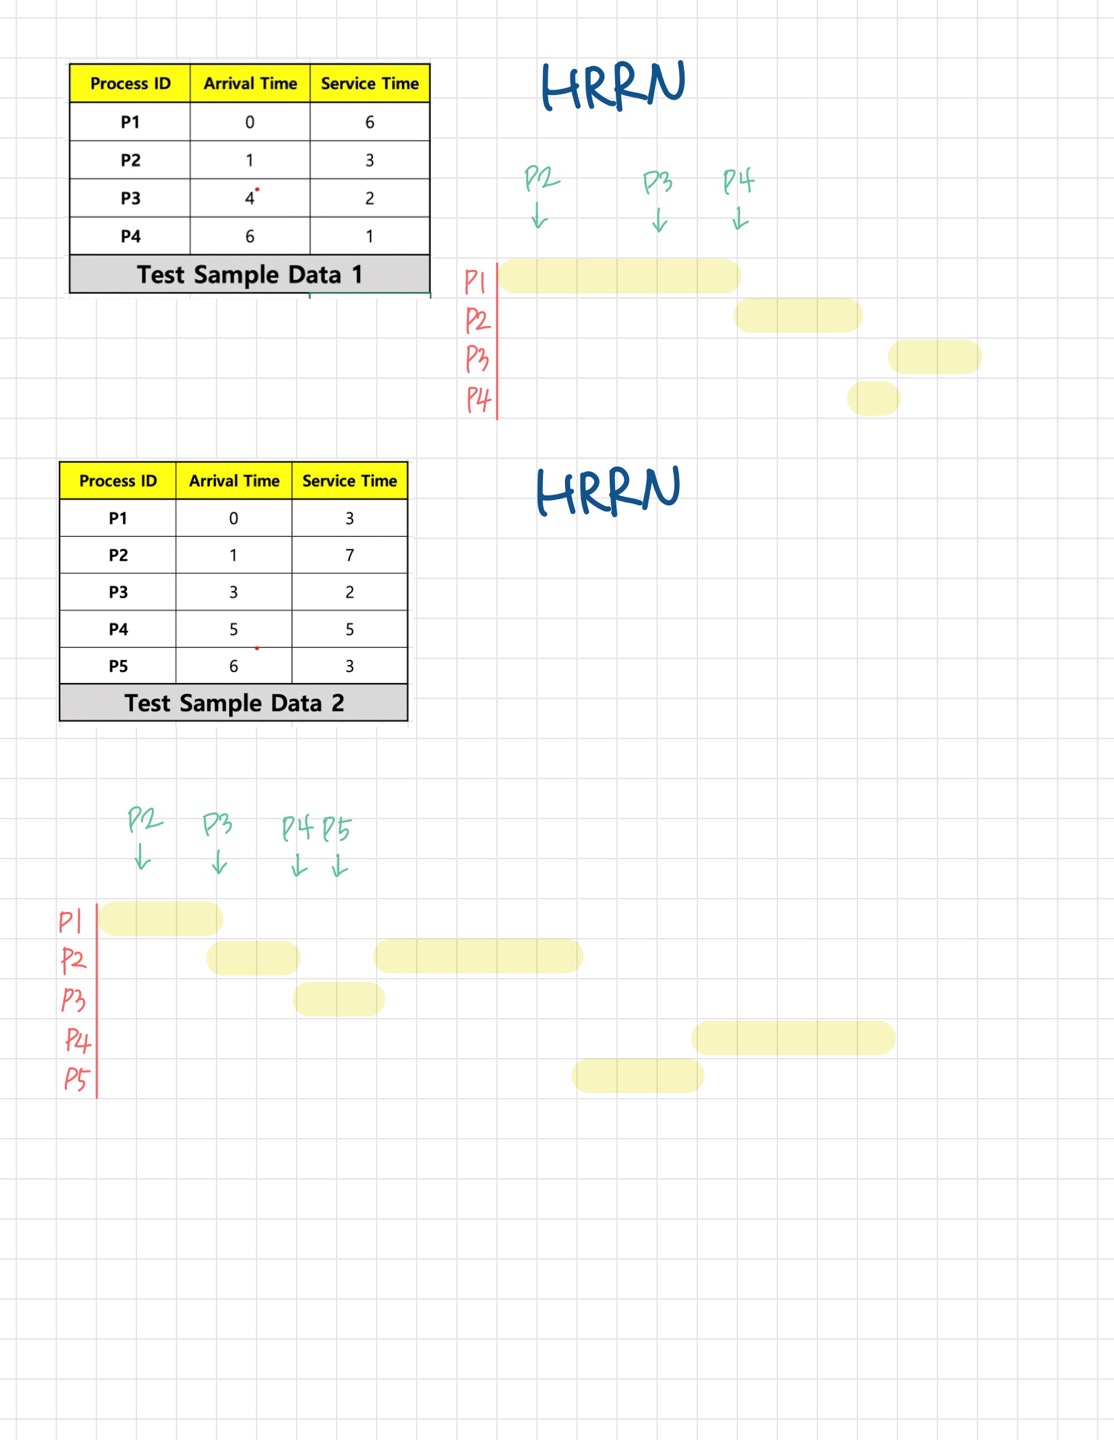 HRRN
Process ID Arrival Time Service Time
P1 0 6
P2 1 3
P3 4 2
P4 6 1
Test Sample Data 1
P2 P3 P4
P1
P2
P3
P4
HRRN
Process ID Arrival Time Service Time
P1 0 3
P2 1 7
P3 3 2
P4 5 5
P5 6 3
Test Sample Data 2
P2 P3 P4 P5
P1
P2
P3
P4
P5